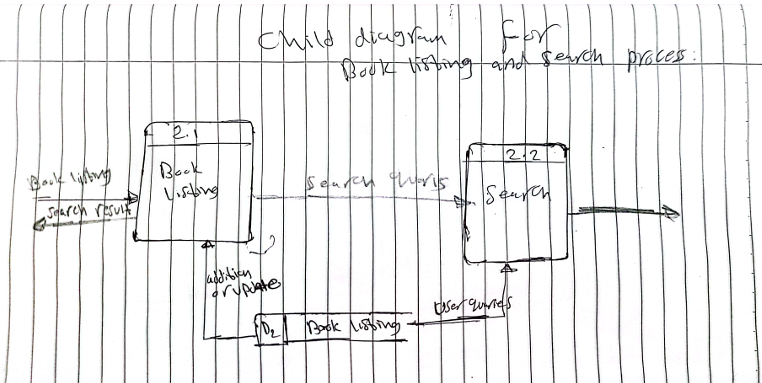 Child diagram For
Book listing and search process:
2.1
Book
listing
2.2
Search
Book listing
search result
search quaris
addition
or updates
D2 Book listing
User quaries